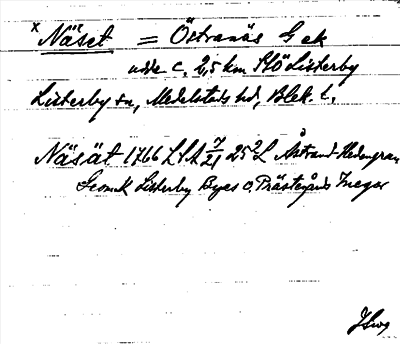 x Näset = Östranäs G ek
udde c. 2,5 km StÖ Listerby
Listerby sn, Medelstads hd, Blek. l.
Näsät 1766 LSA 7/21 25²L Åstrand-Hedengran
Geom K Listerby Byes o. Prästegårds Inegor